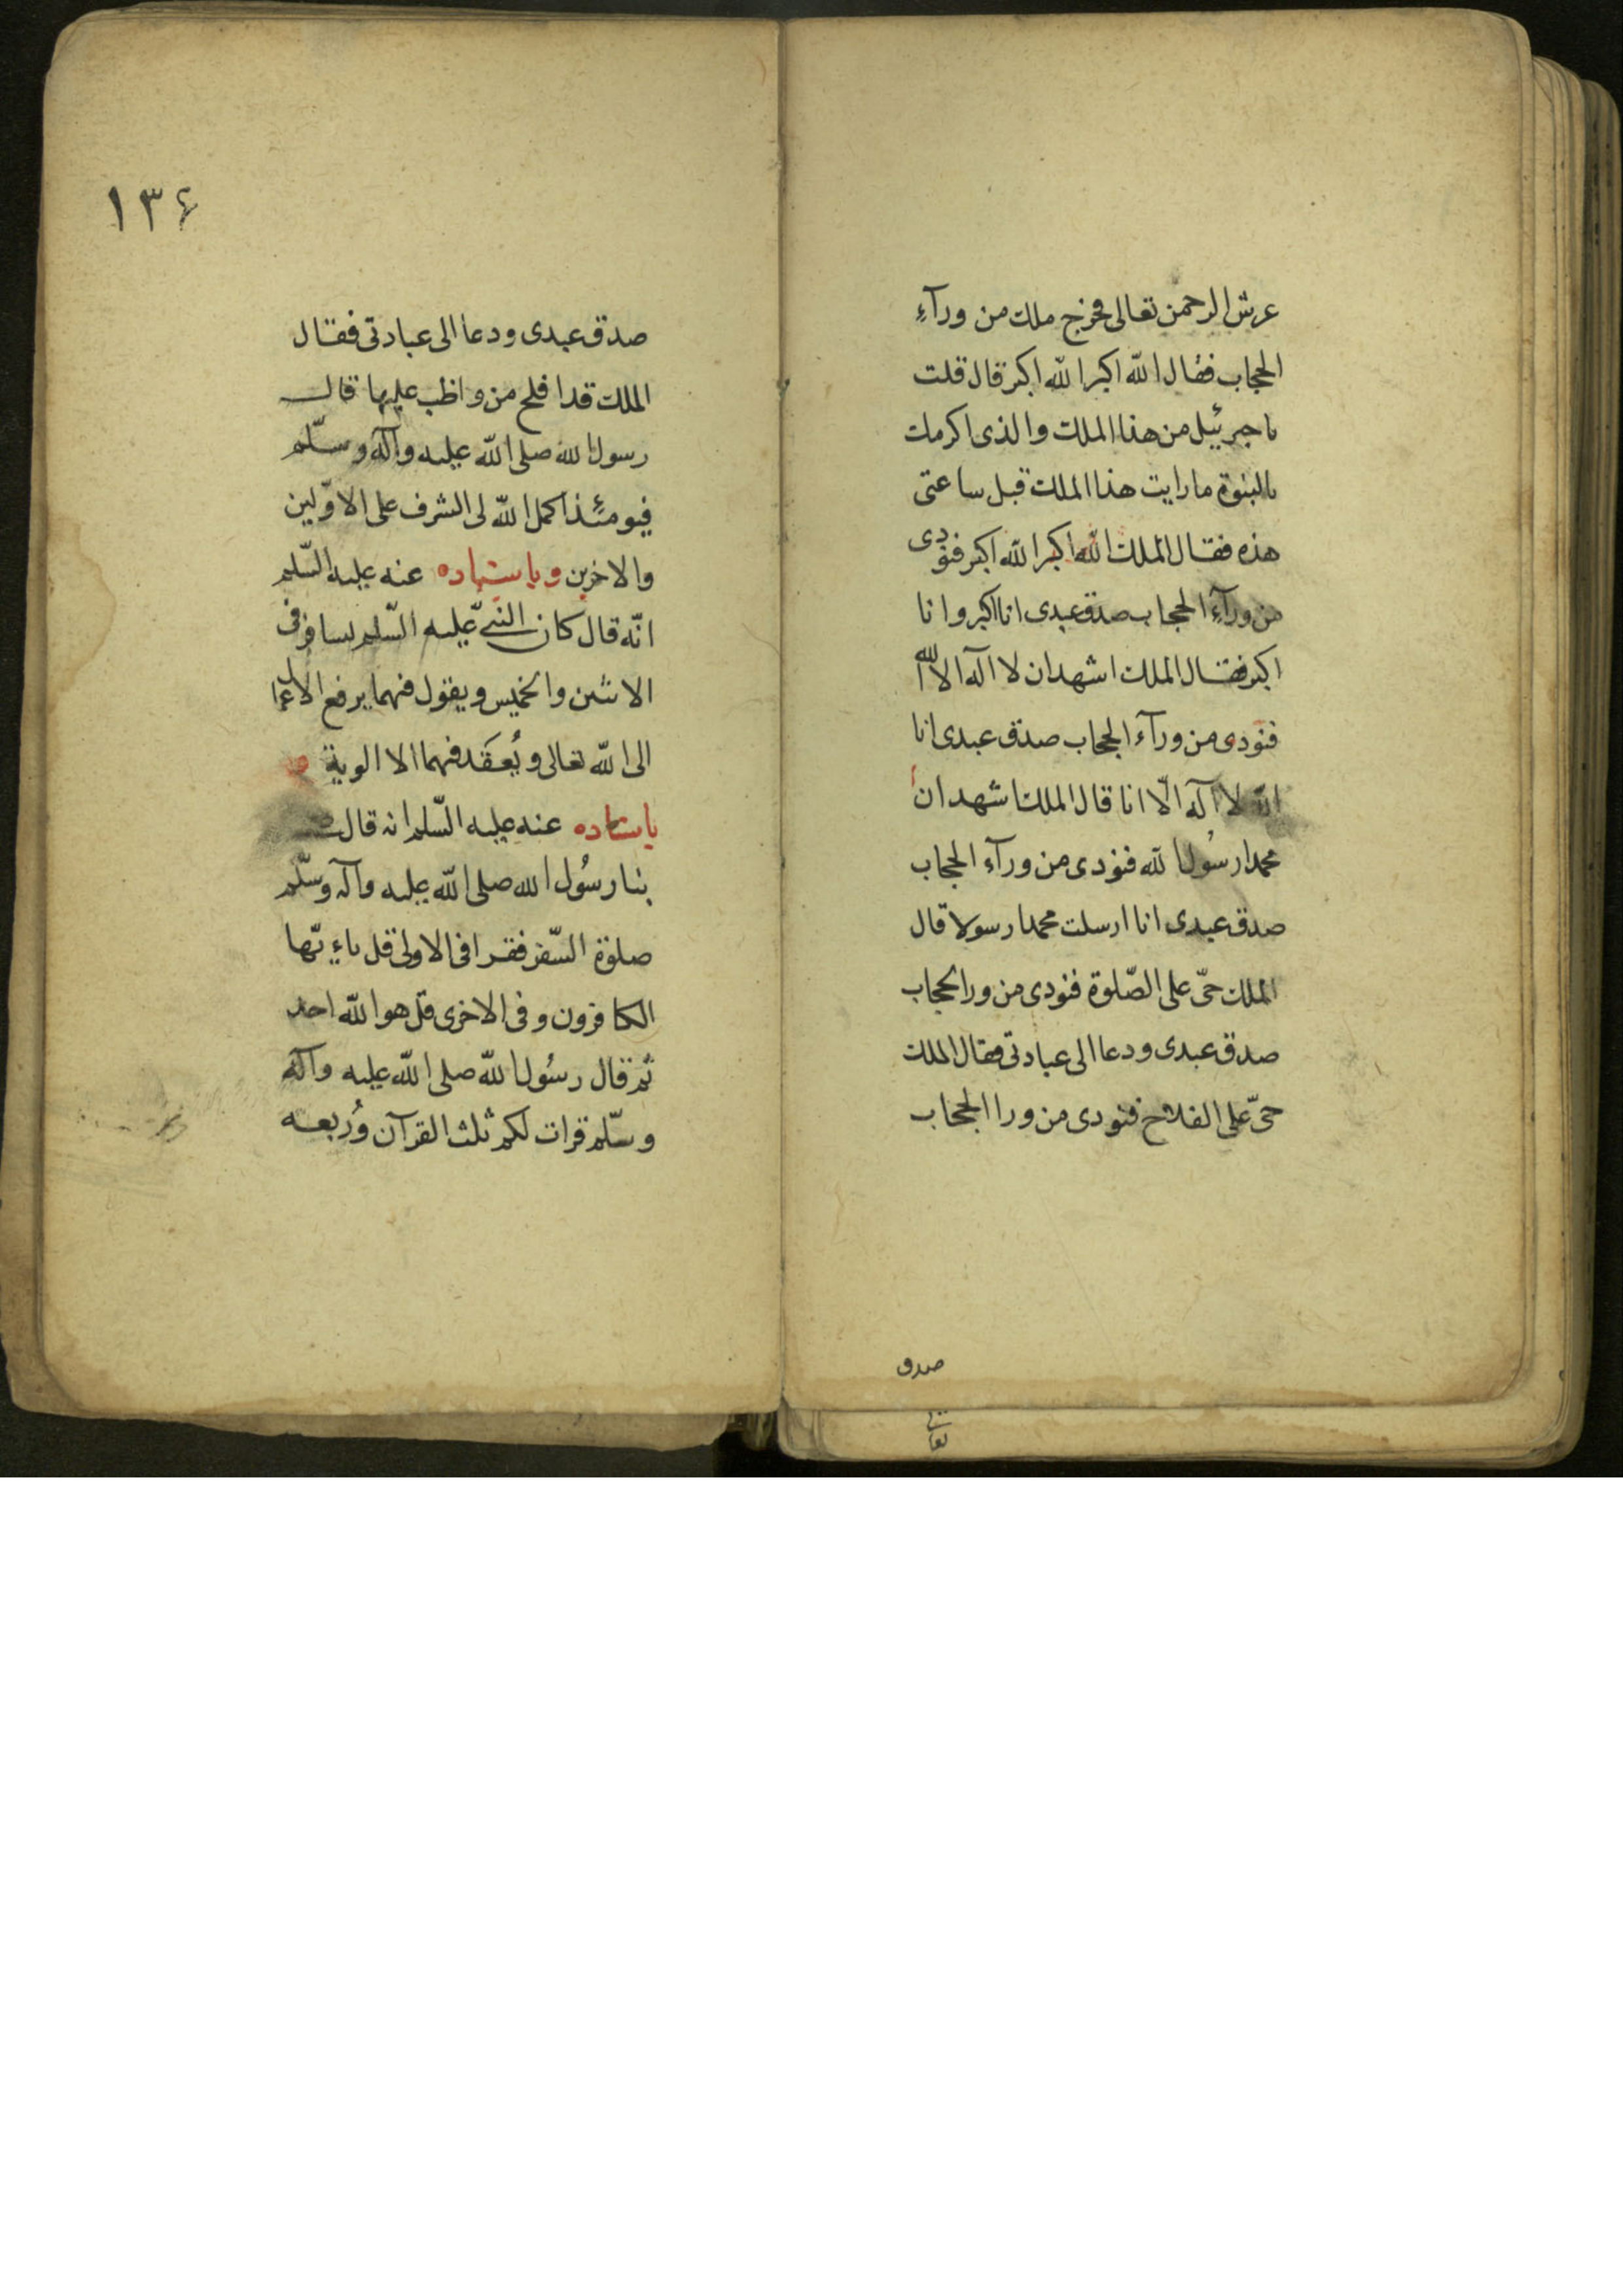 عرش الرحمن تعالى فخرج ملك من ورآءِ
الحجاب فقال الله اكبر الله اكبر قال قلت
يا جبرئيل من هذا الملك والذى اكرمك
بالنبوة ما رايت هذا الملك قبل ساعتى
هذه فقال الملك الله اكبر الله اكبر فنودى
من ورآءِ الحجاب صدق عبدى انا اكبر وانا
اكبر فقال الملك اشهد ان لا اله الا الله
فنودى من ورآء الحجاب صدق عبدى انا
الله لا اله الّا انا قال الملك اشهد ان
محمدا رسُول الله فنودى من ورآء الحجاب
صدق عبدى انا ارسلت محمدا رسولا قال
الملك حىّ على الصّلوة فنودى من ورا الحجاب
صدق عبدى ودعا الى عبادتى فقال الملك
حىّ على الفلاح فنودى من ورا الحجاب
صدق
١٣۶
صدق عبدى ودعا الى عبادتى فقال
الملك قد افلح من واظب عليها قال
رسول الله صلى الله عليه وآله وسلّم
فيومئذ اكمل الله لى الشرف على الاوّلين
والاخرين وباسناده عنه عليه السّلم
انّه قال كان النبىّ عليه السّلم يسافر فى
الاثنين والخميس ويقول فيهما يرفع الاعمال
الى الله تعالى ويُعقَد فيهما الالوية و
باسناده عنه عليه السّلم انه قال صلى
بنا رسُول الله صلى الله عليه وآله وسلّم
صلوة السّفر فقرا فى الاولى قل ياءيّها
الكافرون وفى الاخرى قل هو الله احد
ثم قال رسُول الله صلى الله عليه وآله
وسلّم قرات لكم ثلث القرآن ورُبعه